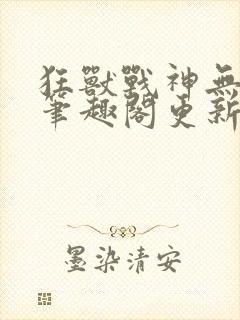 狂獸戰神無
筆趣閣更新
墨染清安